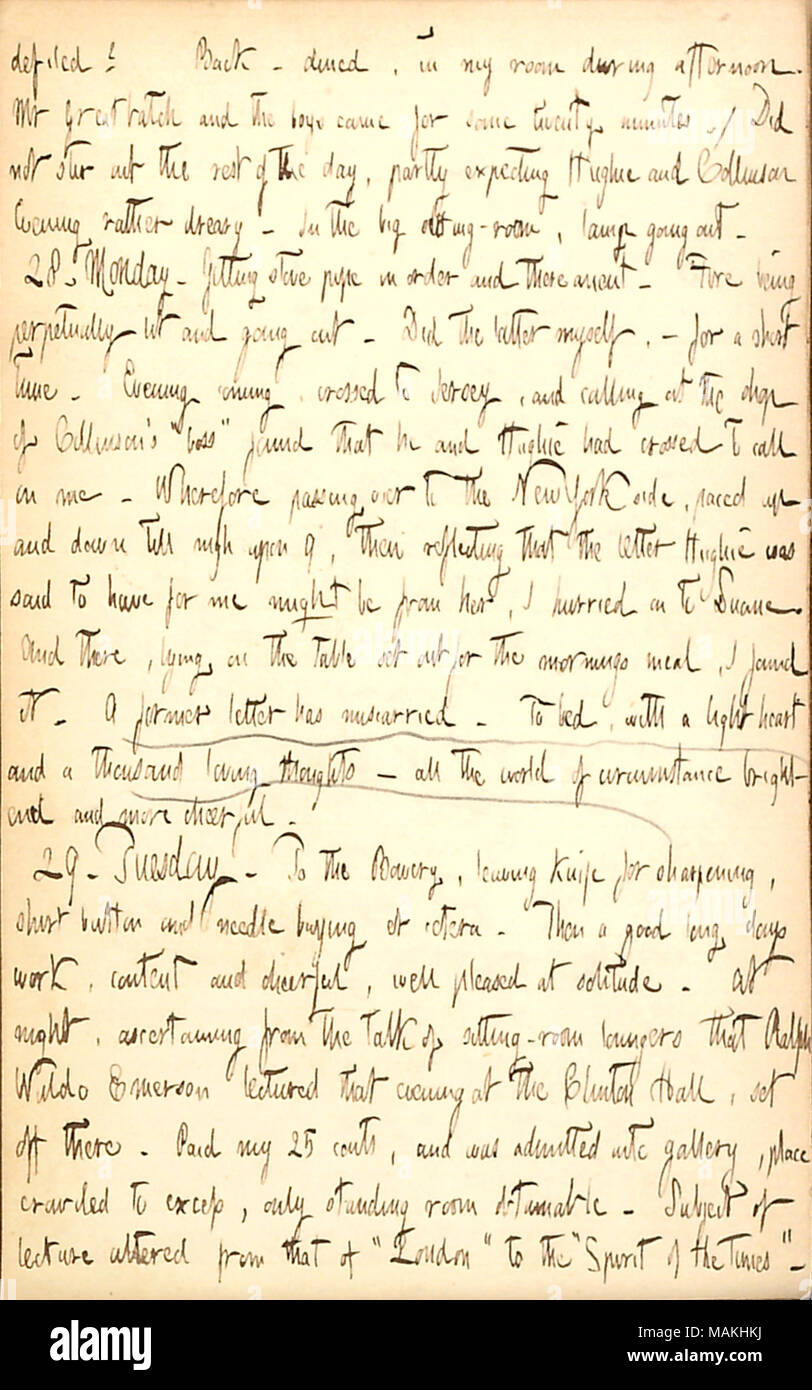 defiled! Back - dined, in my room during afternoon.
Mr Greatbatch and the boys came for some twenty minutes. / Did
not stir out the rest of the day, partly expecting Hughie and Collinson
Evening rather dreary - In the big sitting-room, lamp going out -
28. Monday - Getting stove pipe in order and thereanent - Fire being
perpetually lit and going out - Did the latter myself, - for a short
time - Evening coming, crossed to Jersey, and calling at the shop
of Collinson's "boss" found that he and Hughie had crossed to call
on me - Wherefore passing over to the New York side, paced up
and down till nigh upon 9, then reflecting that the letter Hughie was
said to have for me might be from her, I hurried on to Duane.
And there, lying on the table set out for the mornings meal, I found
it - A former letter has miscarried - To bed, with a light heart
and a thousand loving thoughts - all the world of circumstance bright-
end and more cheerful -
29 - Tuesday - To the Bowery, leaving knife for sharpening,
shirt button and needle buying et cetera - Then a good long days
work, content and cheerful, well pleased at solitude - At
night, ascertaining from the talk of sitting-room loungers that Ralph
Waldo Emerson lectured that evening at the Clinton Hall, set
off there - Paid my 25 cents, and was admitted into gallery, place
crowded to excess, only standing room obtainable - Subject of
lecture altered from that of "London" to the "Spirit of the Times" -
alamy
Image ID: MAKHKJ
www.alamy.com